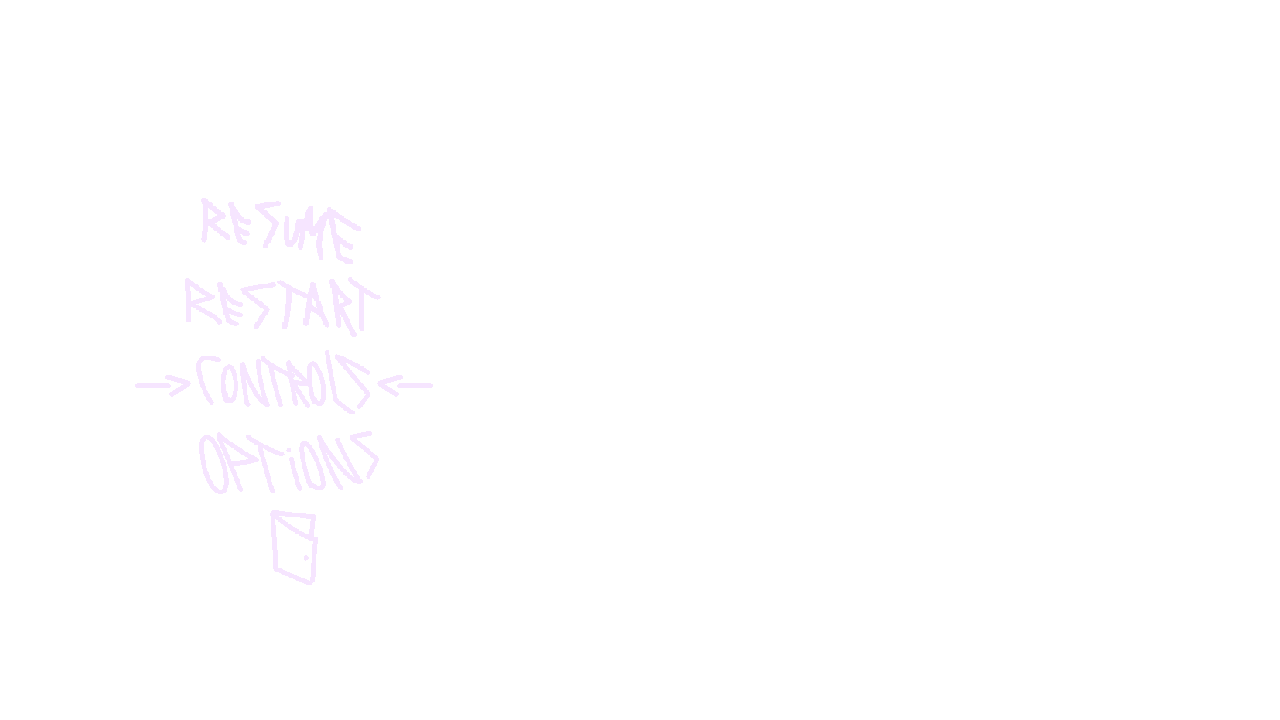 RESUME
RESTART
CONTROLS
OPTIONS